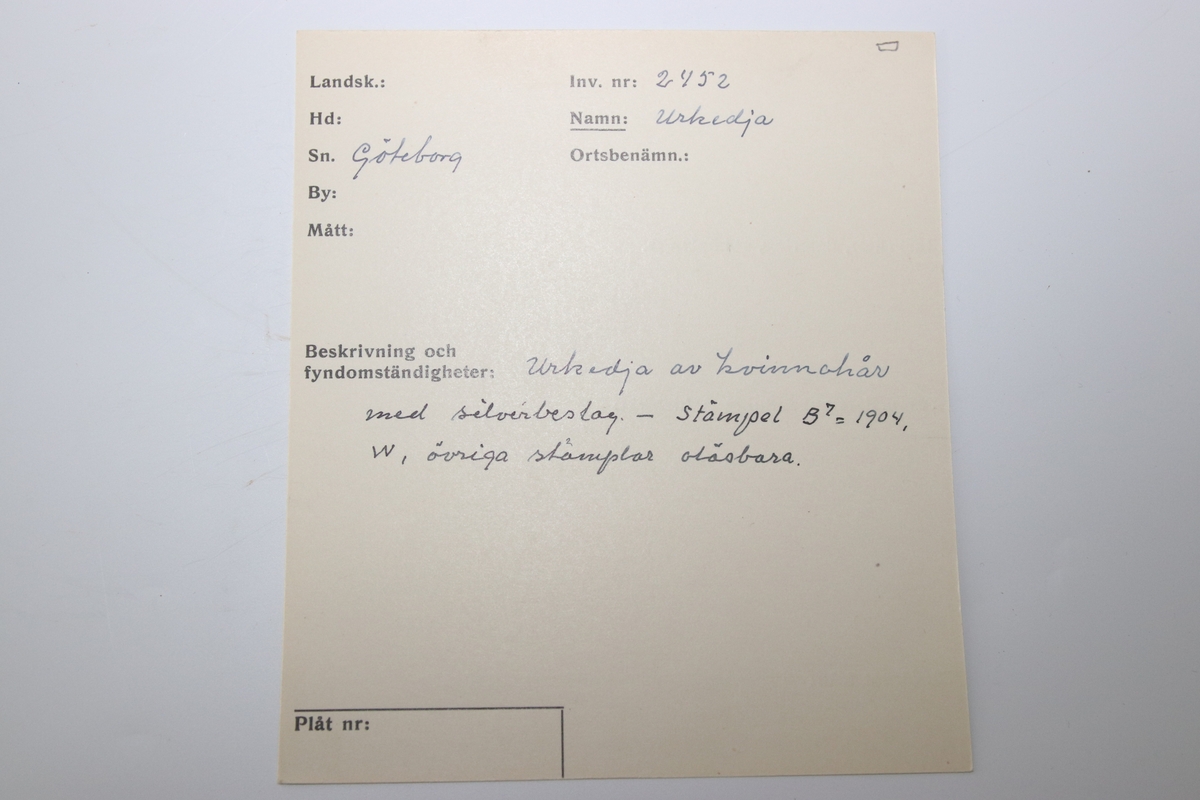 Landsk.:
Hd:
Sn. Göteborg
By:
Mått:
Inv. nr: 2452
Namn: Urkedja
Ortsbenämn.:
Beskrivning och
fyndomständigheter: Urkedja av kvinnohår
med silverbeslag. – Stämpel B7 = 1904,
W, övriga stämplar oläsbara.
Plåt nr: